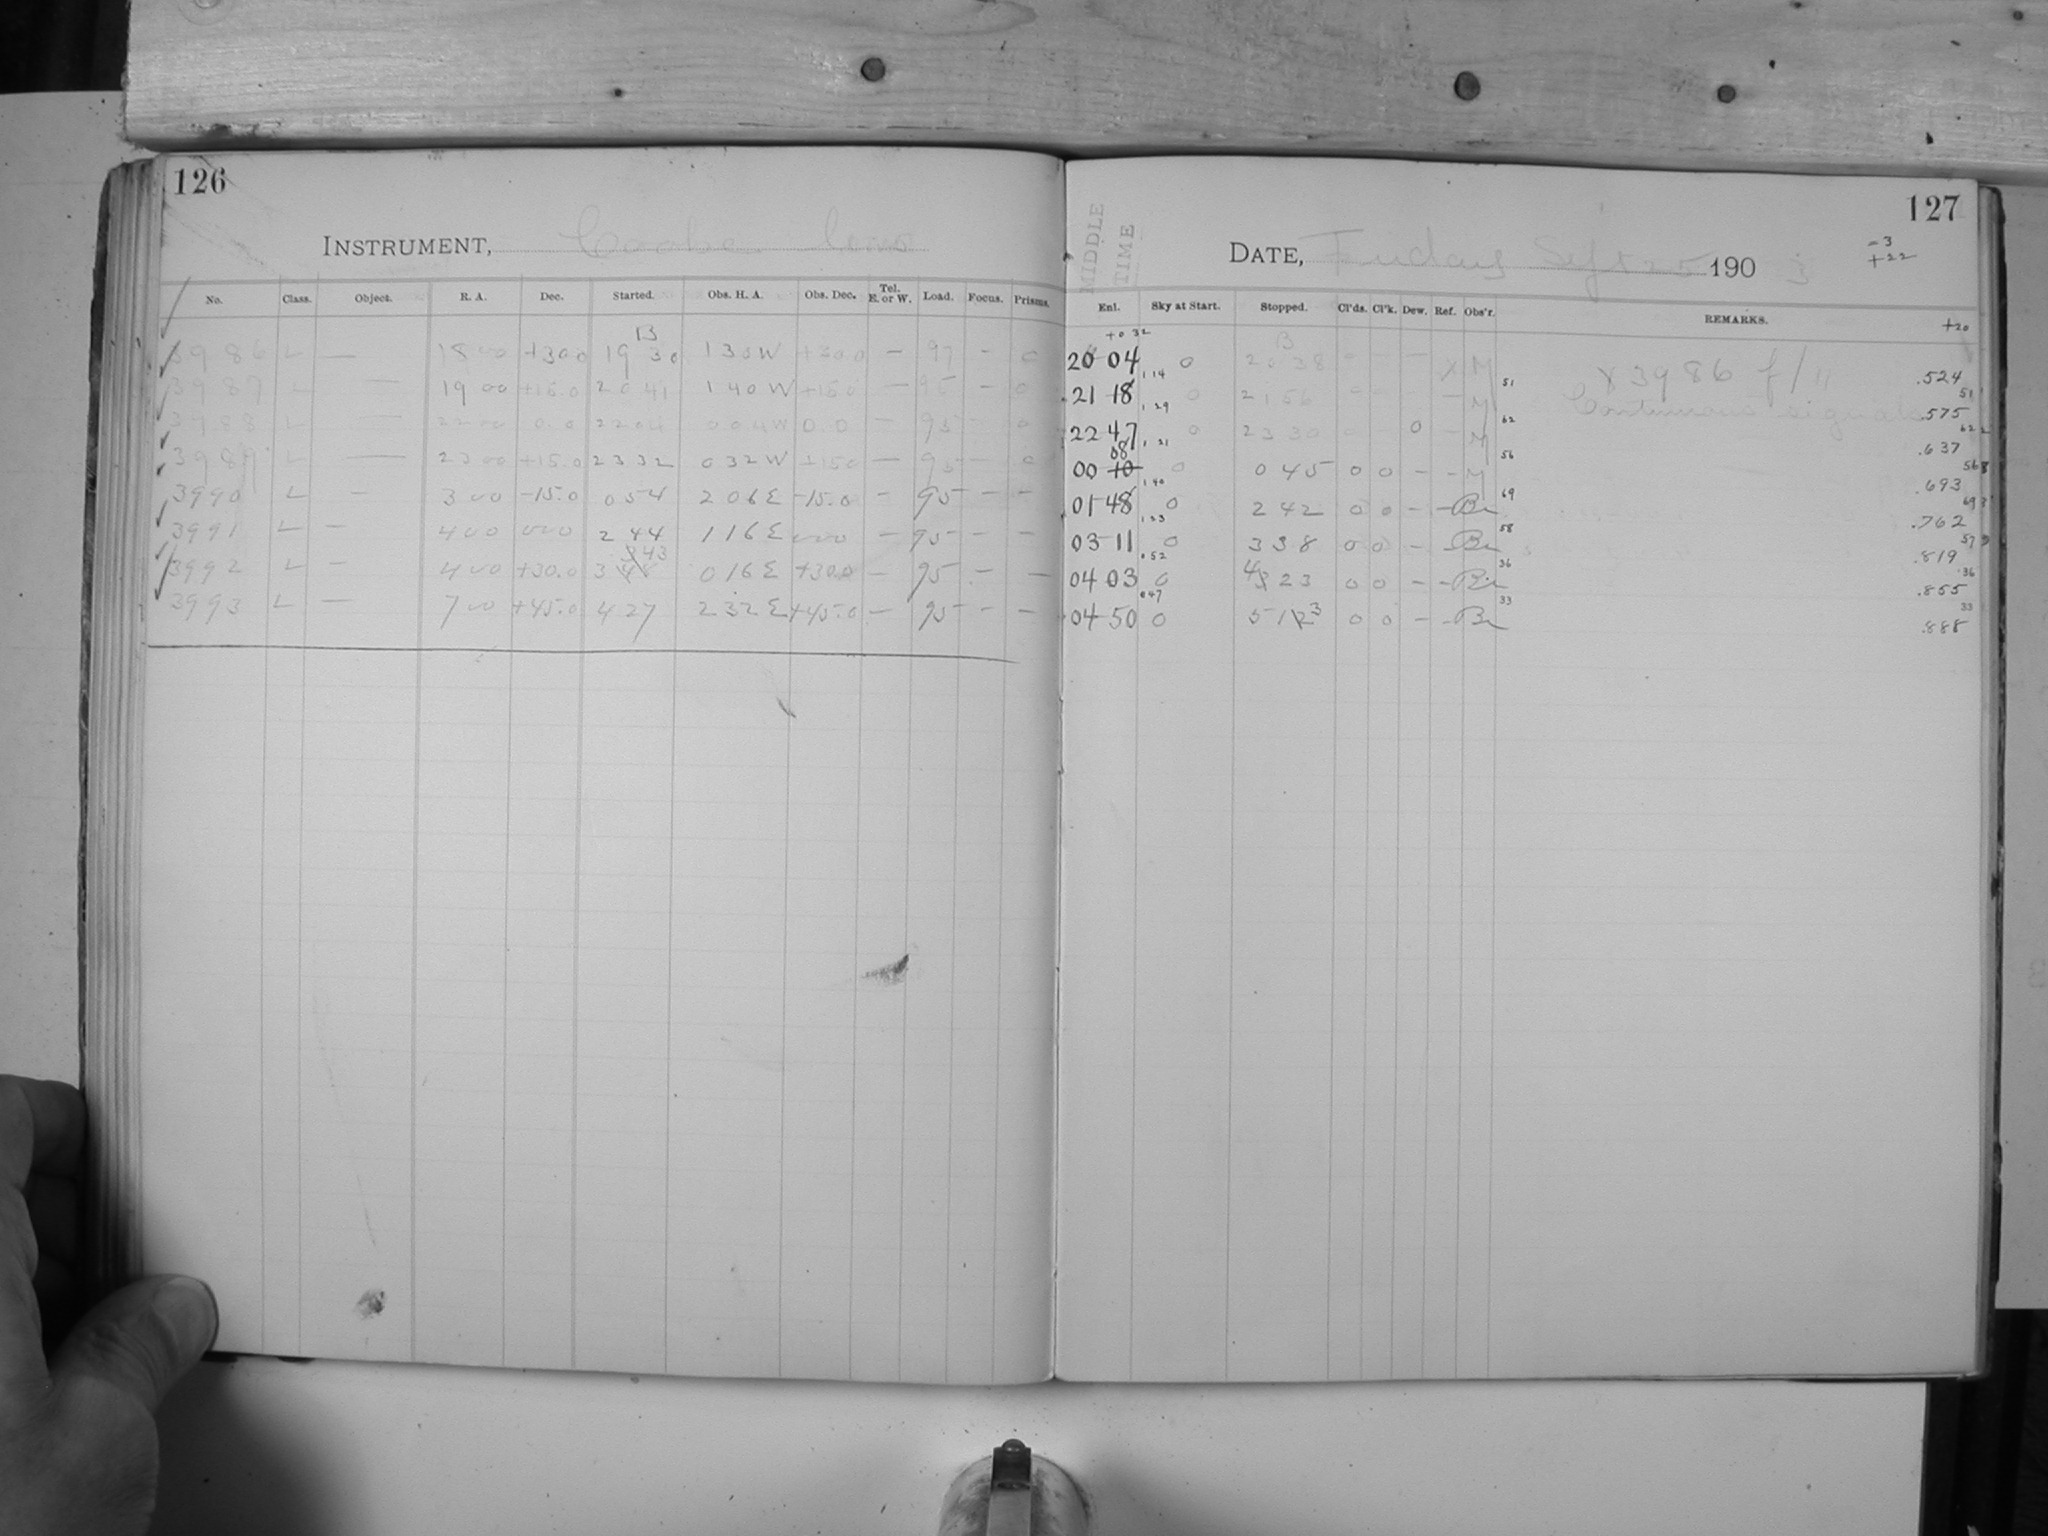 126
INSTRUMENT, Cooke lens
No. Class. Object. R. A. Dec. Started. Obs. H. A. Obs. Dec. Tel. E. or W. Load. Focus. Prisms.
13
3986 L — 18 00 +30.0 19 30 1 30 W +30.0 — 97 - 0
3987 L — 19 00 +15.0 20 41 1 40 W +15.0 — 95 - 0
3988 L — 22 00 0.0 22 04 0 04 W 0.0 — 95 - 0
3989 L — 23 00 +15.0 23 32 0 32 W +15.0 — 95 - 0
3990 L — 3 00 -15.0 0 54 2 06 E -15.0 - 95 - -
3991 L — 4 00 000 2 44 1 16 E 000 - 95 - -
3 43
3992 L — 4 00 +30.0 3 0 16 E +30.0 - 95 - —
3993 L — 7 00 +45.0 4 27 2 32 E +45.0 — 95 - -
127
MIDDLE TIME
DATE, Friday Sept 25 1903
-3
+22
Enl. Sky at Start. Stopped. Cl'ds. Cl'k. Dew. Ref. Obs'r. REMARKS.
+0 32 +20
13
20 04 0 20 38 0 - — X M X 3986 f/11 .524
1 14 51 51
21 18 0 21 56 - M Continuous signals .575
1 29 62 62
22 47 0 23 30 0 - M .637
1 21 56 56
08
00 10 0 0 45 0 0 - - M .693
1 40 69 69
01 48 0 2 42 0 0 - - Br .762
1 23 58 57
03 11 0 3 38 0 0 - - Br .819
0 52 36 36
04 03 0 4 23 0 0 - - Br .855
0 47 33 33
04 50 0 5 13 0 0 - - Br .888